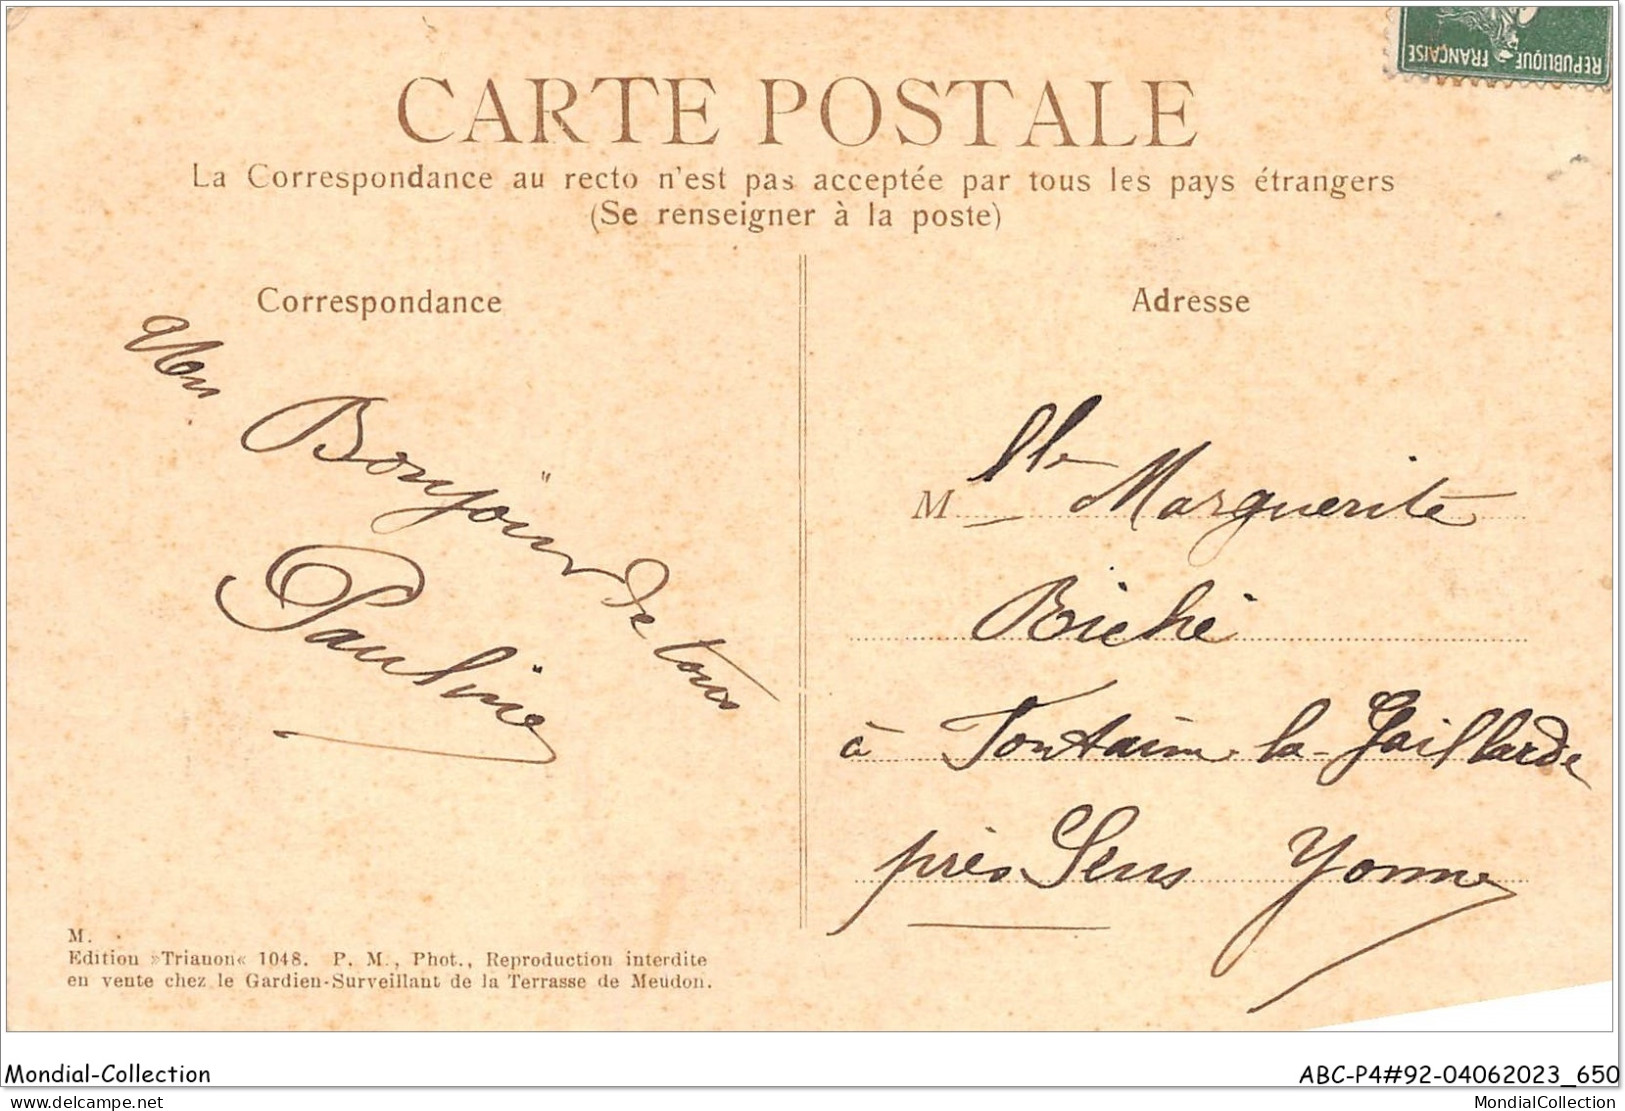 REPUBLIQUE FRANÇAISE
CARTE POSTALE
La Correspondance au recto n'est pas acceptée par tous les pays étrangers
(Se renseigner à la poste)
Correspondance
Un Bonjour de tous
Pauline
Adresse
Mlle Marguerite
Biché
à Fontaine la-Gaillarde
près Sens Yonne
M.
Edition »Trianon« 1048. P. M., Phot., Reproduction interdite
en vente chez le Gardien-Surveillant de la Terrasse de Meudon.
Mondial-Collection
ABC-P4#92-04062023_650
www.delcampe.net
MondialCollection